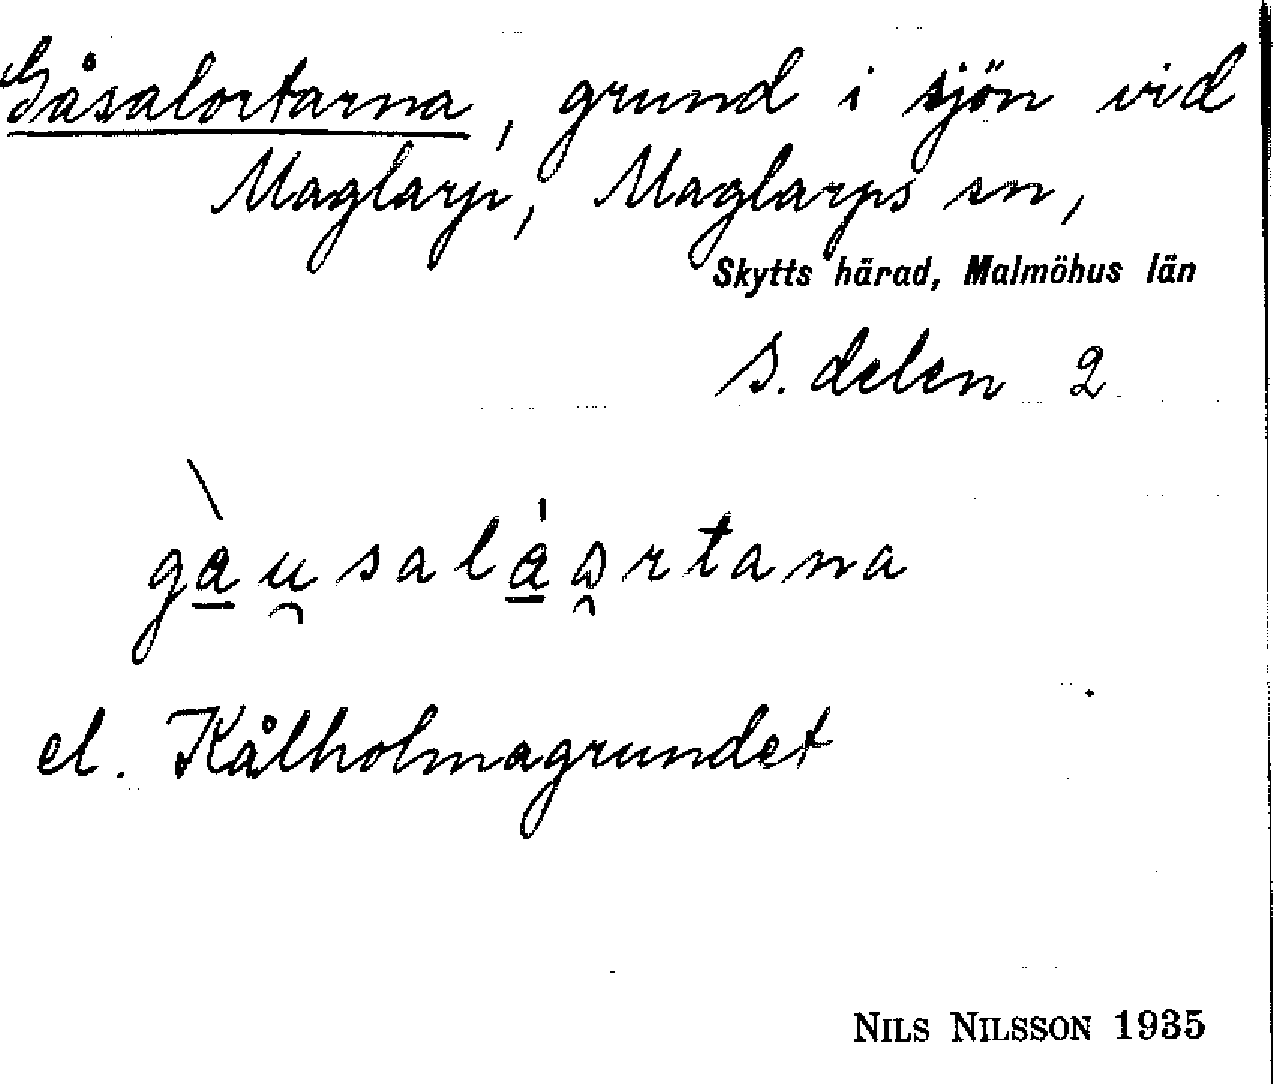 Gåsalortarna, grund i sjön vid
Maglarp, Maglarps sn,
Skytts härad, Malmöhus län
S. delen 2
gàu̯salá̱ꭥ̯rtana
el. Kålholmagrundet
NILS NILSSON 1935